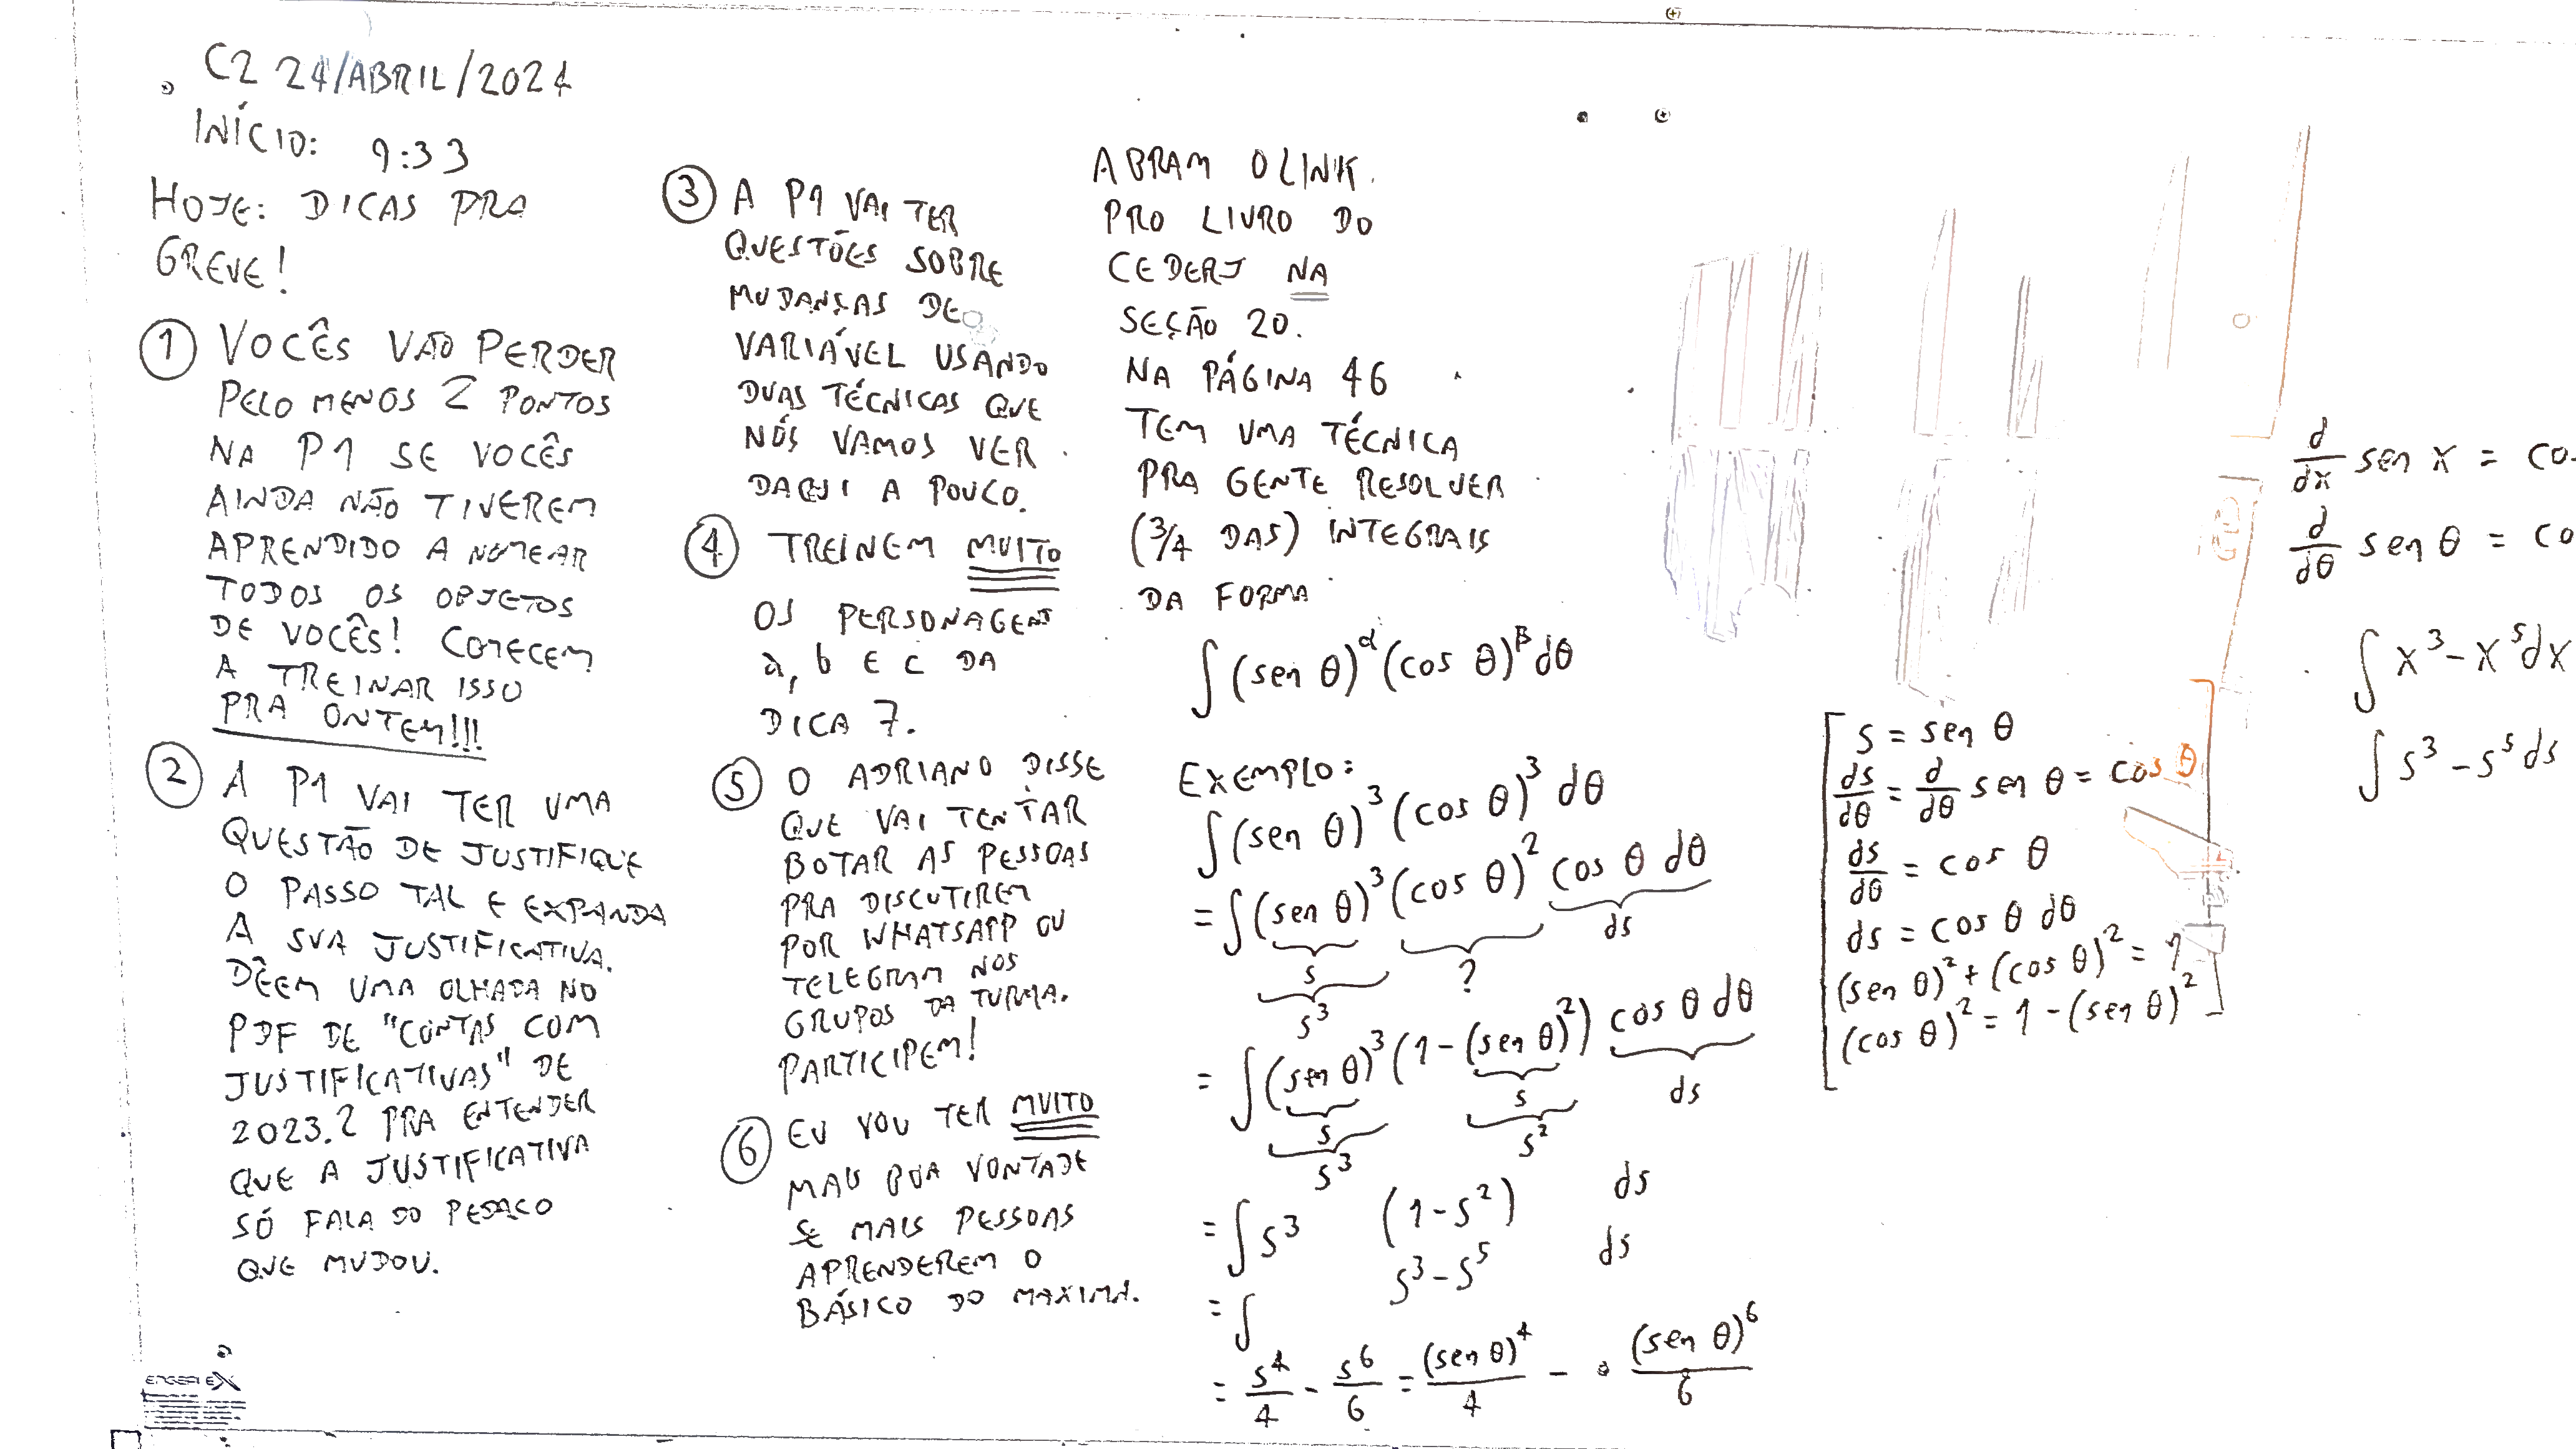 C2 24/ABRIL/2024
INÍCIO: 9:33
HOJE: DICAS PRA
GREVE!
① VOCÊS VÃO PERDER
PELO MENOS 2 PONTOS
NA P1 SE VOCÊS
AINDA NÃO TIVEREM
APRENDIDO A NOMEAR
TODOS OS OBJETOS
DE VOCÊS! COMECEM
A TREINAR ISSO
PRA ONTEM!!!
② A P1 VAI TER UMA
QUESTÃO DE JUSTIFIQUE
O PASSO TAL E EXPANDA
A SUA JUSTIFICATIVA.
DÊEM UMA OLHADA NO
PDF DE "CONTAS COM
JUSTIFICATIVAS" DE
2023.2 PRA ENTENDER
QUE A JUSTIFICATIVA
SÓ FALA DO PEDAÇO
QUE MUDOU.
③ A P1 VAI TER
QUESTÕES SOBRE
MUDANÇAS DE
VARIÁVEL USANDO
DUAS TÉCNICAS QUE
NÓS VAMOS VER
DAQUI A POUCO.
④ TREINEM MUITO
OS PERSONAGENS
a, b E c DA
DICA 7.
⑤ O ADRIANO DISSE
QUE VAI TENTAR
BOTAR AS PESSOAS
PRA DISCUTIREM
POR WHATSAPP OU
TELEGRAM NOS
GRUPOS DA TURMA.
PARTICIPEM!
⑥ EU VOU TER MUITO
MAIS BOA VONTADE
SE MAIS PESSOAS
APRENDEREM O
BÁSICO DO MAXIMA.
ABRAM O LINK
PRO LIVRO DO
CEDERJ NA
SEÇÃO 20.
NA PÁGINA 46
TEM UMA TÉCNICA
PRA GENTE RESOLVER
(3/4 DAS) INTEGRAIS
DA FORMA
∫ (sen θ)^α (cos θ)^β dθ
EXEMPLO:
∫ (sen θ)³ (cos θ)³ dθ
= ∫ (sen θ)³ (cos θ)² cos θ dθ
s ? ds
s³
= ∫ (sen θ)³ (1 - (sen θ)²) cos θ dθ
s s ds
s³ s²
= ∫ s³ (1 - s²) ds
= ∫ s³ - s⁵ ds
= s⁴/4 - s⁶/6 = (sen θ)⁴/4 - (sen θ)⁶/6
[ s = sen θ
ds/dθ = d/dθ sen θ = cos θ
ds/dθ = cos θ
ds = cos θ dθ
(sen θ)² + (cos θ)² = 1
(cos θ)² = 1 - (sen θ)² ]
d/dx sen x = co
d/dθ sen θ = co
∫ x³ - x⁵ dx
∫ s³ - s⁵ ds